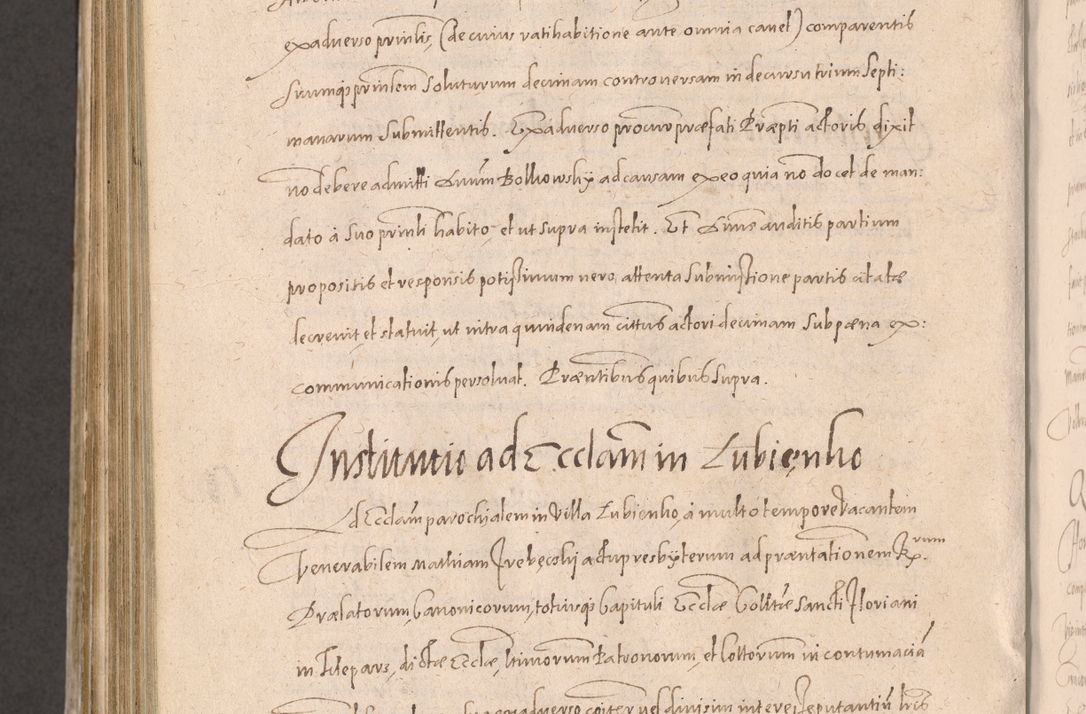 ex adverso prınlis, (de cuius ratihabitione ante omnia cavet) comparentis
suumq́ prınlem soluturum decimam controversam in decursu trium septi:
manarum submittentis. Ex adverso procur præfati Præpti actoris dixit
nō debere admitti Dnūm Bolliowskÿ ad causam ex eo quia nō docet de man:
dato à suo prınli habito, et ut supra institit. Et Dnus auditis partium
propositis et responsis potissimum vero, attenta submissione partis citatæ
decrevit et statuit, ut intra quindenam cittus actori decimam sub pæna ex:
communicationis persolvat. Præntibus quibus supra.
Institutio ad Ecclam in Lubięnko
Ad Ecclam parochialem in Villa Lubięnko, à multo tempore vacantem
Venerabilem Mathiam Trebęcskij actu presbÿterum ad præntationem Rx.rum
Prælatorum, Canonicorum, totiusq́ Capituli Ecclæ Colltæ Sancti Floriani
in Clepars, dictæ Ecclæ, ltimorum Patronorum, et Coltorum in contumaciā
adverso coiter vel divisim interesse putantiū